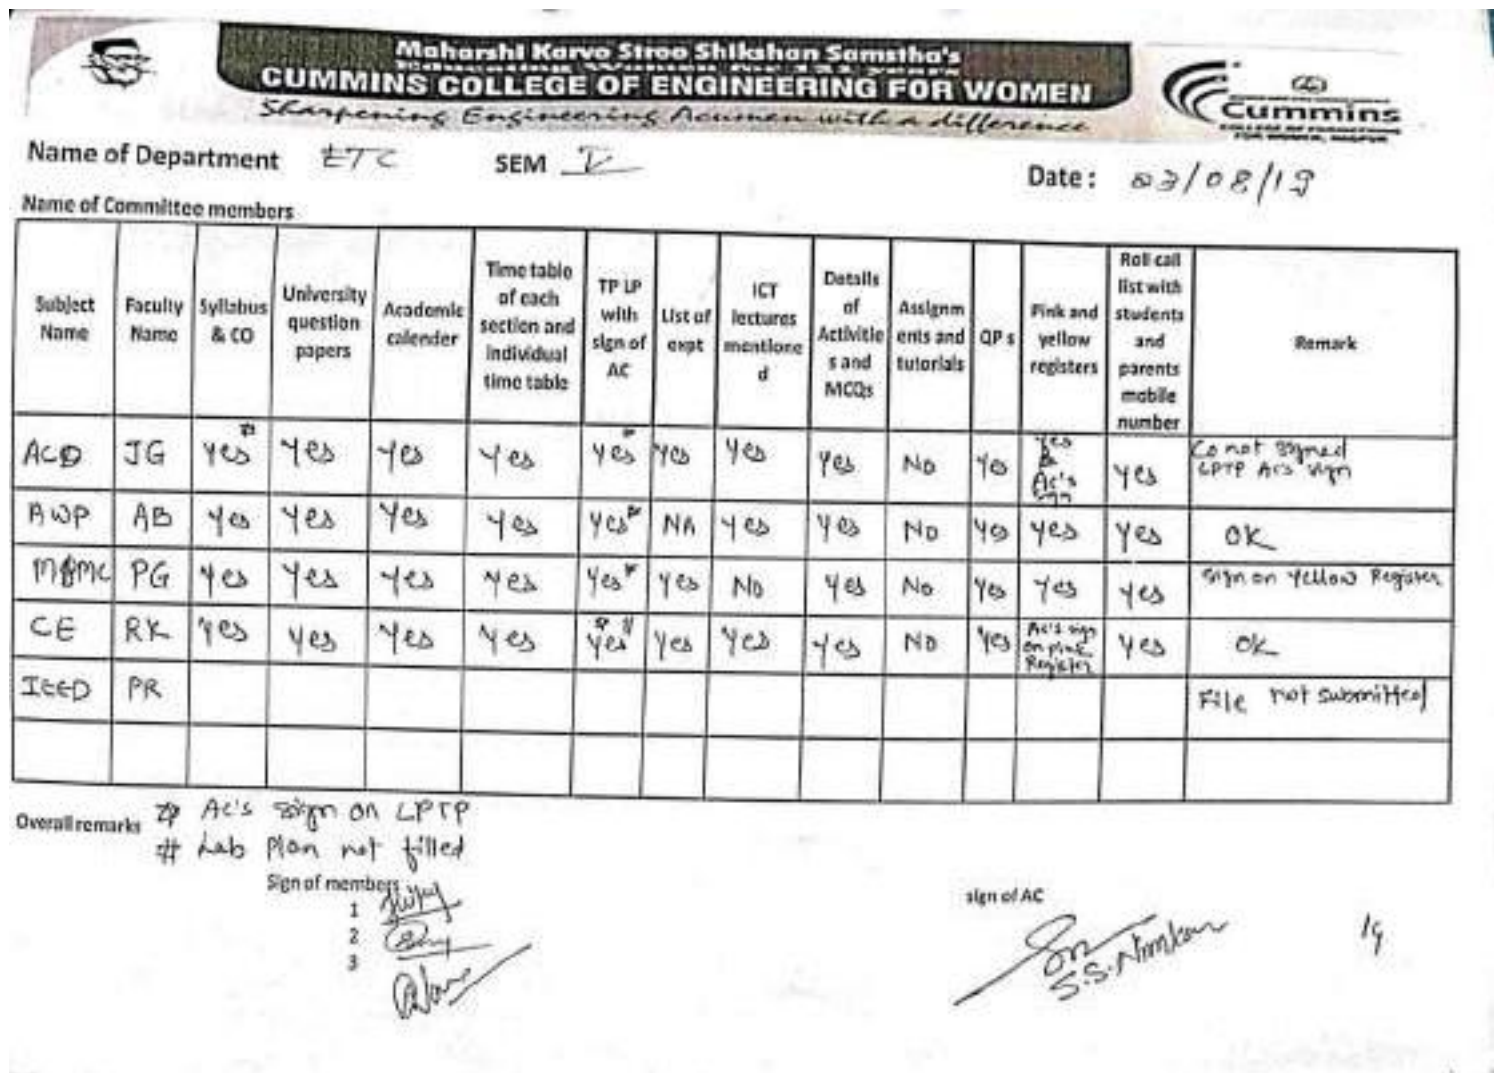 Maharshi Karve Stree Shikshan Samstha's
CUMMINS COLLEGE OF ENGINEERING FOR WOMEN
Sharpening Engineering Acumen with a difference
Cummins
Name of Department ETC SEM V Date: 03/08/19
Name of Committee members
Subject Name Faculty Name Syllabus & CO University question papers Academic calender Time table of each section and individual time table TP LP with sign of AC List of expt ICT lectures mentioned Details of Activities and MCQs Assignments and tutorials QP s Pink and yellow registers Roll call list with students and parents mobile number Remark
ACD JG Yes Yes Yes Yes Yes Yes Yes Yes No Yes Yes & Ac's sign Yes Co not signed LPTP Ac's sign
AWP AB Yes Yes Yes Yes Yes NA Yes Yes No Yes Yes Yes OK
PG Yes Yes Yes Yes Yes Yes No Yes No Yes Yes Yes Sign on Yellow Register
CE RK Yes Yes Yes Yes Yes # Yes Yes Yes No Yes Ac's sign on pink Register Yes OK
IEED PR File not submitted
Overall remarks Ac's sign on LPTP
# Lab Plan not filled
Sign of members
1
2
3
sign of AC